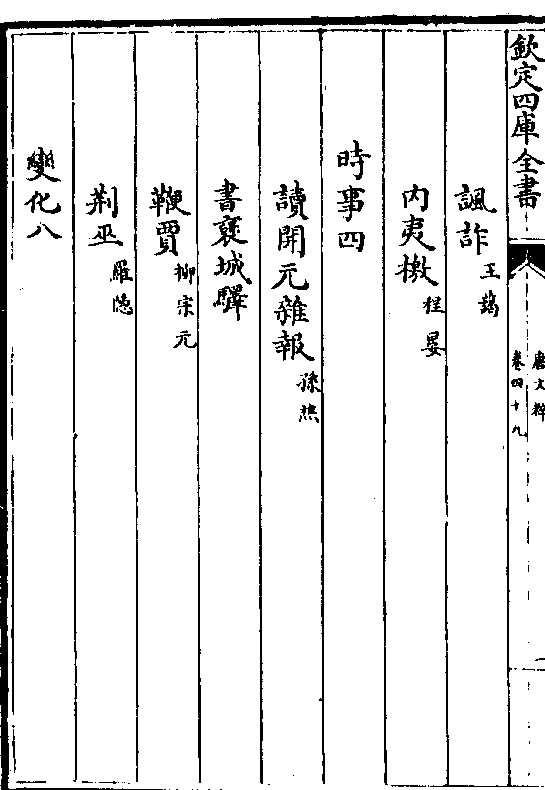 欽定四庫全書
唐文粹
卷四十九
諷詐王藹
内夷檄程晏
時事四
讀開元雜報孫樵
書襃城驛
鞭賈柳宗元
荆巫羅隱
變化八